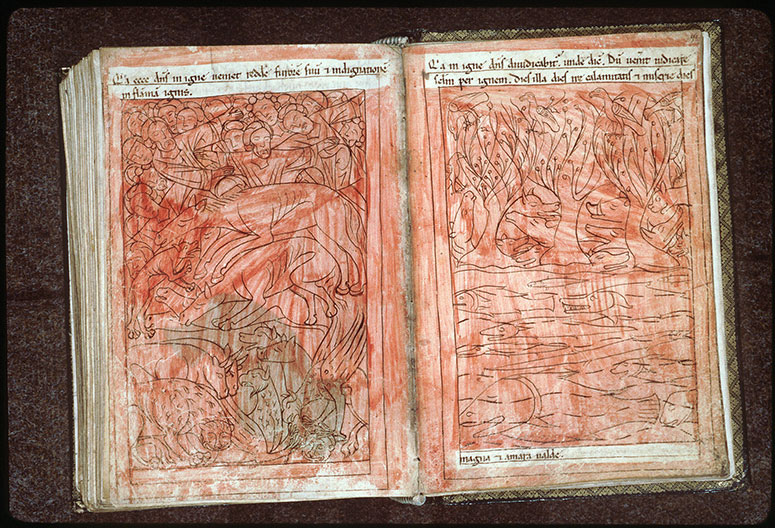 Qa ecce dns in igne veniet redde furore suu ⁊ indignatione
in flama ignis.
Qa in igne dns diiudicabit. unde dic. Du venit iudicare
sclm per ignem. dies illa dies ire calamitatis ⁊ miserie dies
magna ⁊ amara valde.